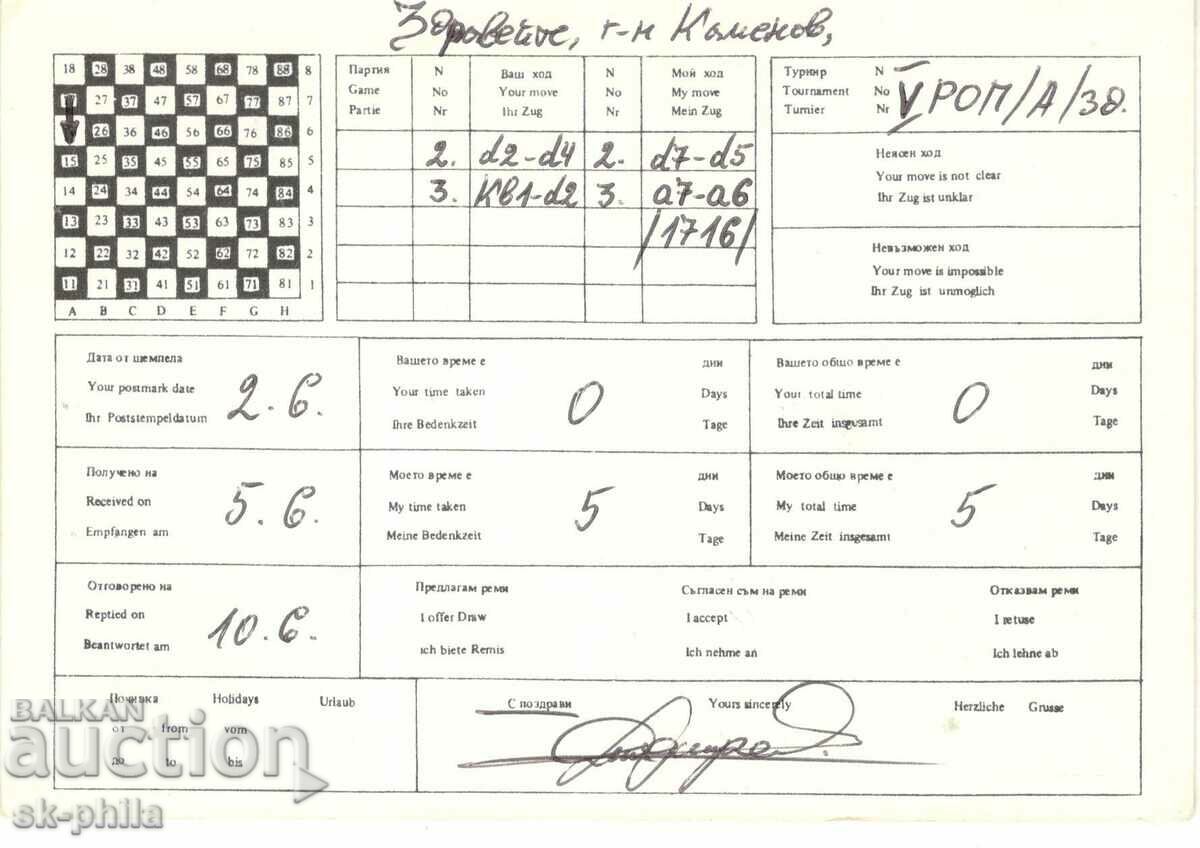 Здравейте, г-н Каменов,
18 28 38 48 58 68 78 88 8
27 37 47 57 67 77 87 7
26 36 46 56 66 76 86 6
15 25 35 45 55 65 75 85 5
14 24 34 44 54 64 74 84 4
13 23 33 43 53 63 73 83 3
12 22 32 42 52 62 72 82 2
11 21 31 41 51 61 71 81 1
A B C D E F G H
Партия N Ваш ход N Мой ход
Game No Your move No My move
Partie Nr Ihr Zug Nr Mein Zug
2. d2-d4 2. d7-d5
3. Кв1-d2 3. a7-a6
/1716/
Турнир N
Tournament No
Turnier Nr
V РОП/А/38.
Неясен ход
Your move is not clear
Ihr Zug ist unklar
Невъзможен ход
Your move is impossible
Ihr Zug ist unmoglich
Дата от щемпела
Your postmark date
Ihr Poststempeldatum
2.6.
Вашето време е дни
Your time taken 0 Days
Ihre Bedenkzeit Tage
Вашето общо време е дни
Your total time 0 Days
Ihre Zeit insgesamt Tage
Получено на
Received on
Empfangen am
5.6.
Моето време е дни
My time taken 5 Days
Meine Bedenkzeit Tage
Моето общо време е дни
My total time 5 Days
Meine Zeit insgesamt Tage
Отговорено на
Reptied on
Beantwortet am
10.6.
Предлагам реми Съгласен съм на реми Отказвам реми
I offer Draw I accept I retuse
ich biete Remis Ich nehme an Ich lehne ab
Почивка Holidays Urlaub
от from vom
до to bis
С поздрави Yours sincerely Herzliche Grusse
BALKAN
auction
sk-phila